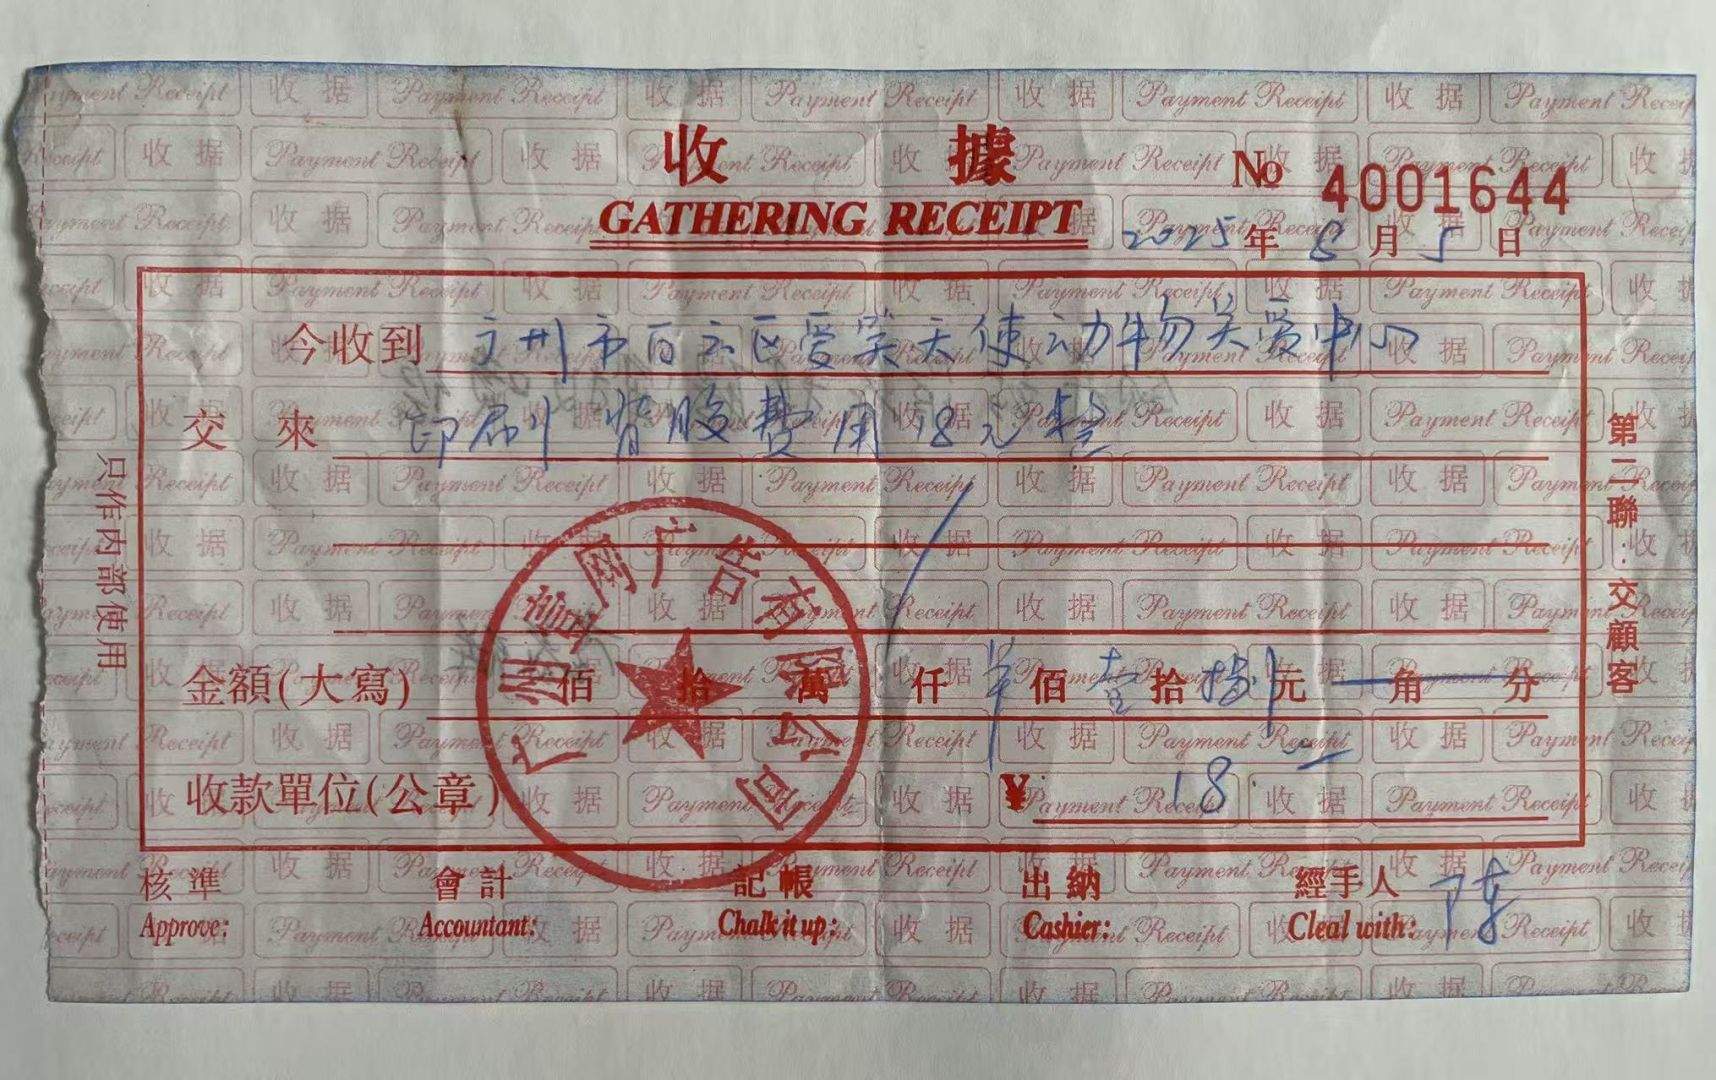 收 據
GATHERING RECEIPT
№ 4001644
2025 年 8 月 5 日
今收到 广州市白云区爱笑天使动物关爱中心
交 來 印刷 背胶费用 18元整
金額(大寫) 佰 拾 萬 仟 佰 壹 拾 捌 元 角 分
收款單位(公章) ¥ 18.
广州 网广告有限公司
核準 會計 記帳 出納 經手人 陈
Approve: Accountant: Chalk it up: Cashier: Cleal with:
只作内部使用
第二聯:交顧客
收据 Payment Receipt